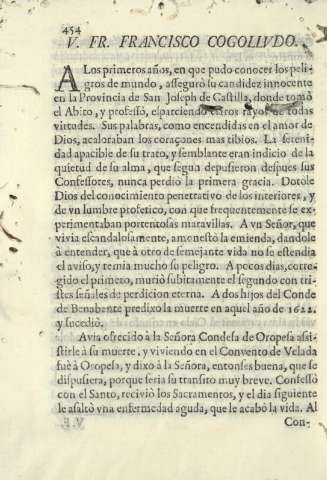 454
V. FR. FRANCISCO COGOLLVDO.
A Los primeros años, en que pudo conocer los peli-
gros de mundo, asseguró su candidez innocente
en la Provincia de San Joseph de Castilla, donde tomó
el Abito, y professó, esparciendo claros rayos de todas
virtudes. Sus palabras, como encendidas en el amor de
Dios, acaloraban los coraçones mas tibios. La sereni-
dad apacible de su trato, y semblante eran indicio de la
quietud de su alma, que segun depusieron despues sus
Confessores, nunca perdió la primera gracia. Dotole
Dios del conocimiento penetrativo de los interiores, y
de vn lumbre profetico, con que frequentemente se ex-
perimentaban portentosas maravillas. A vn Señor, que
vivia escandalosamente, amonestò la emienda, dandole
à entender, que à otro de semejante vida no se estendia
el aviso, y temia mucho su peligro. A pocos dias, corre-
gido el primero, murió subitamente el segundo con tri-
stes señales de perdicion eterna. A dos hijos del Conde
de Benabente predixo la muerte en aquel año de 1622.
y sucedió.
Avia ofrecido à la Señora Condesa de Oropesa assi-
stirle à su muerte, y viviendo en el Convento de Velada
fuè à Oropesa, y dixo à la Señora, entonses buena, que se
dispusiera, porque seria su transito muy breve. Confessó
con el Santo, recivió los Sacramentos, y el dia siguiente
le asaltó vna enfermedad aguda, que le acabò la vida. Al
Con-